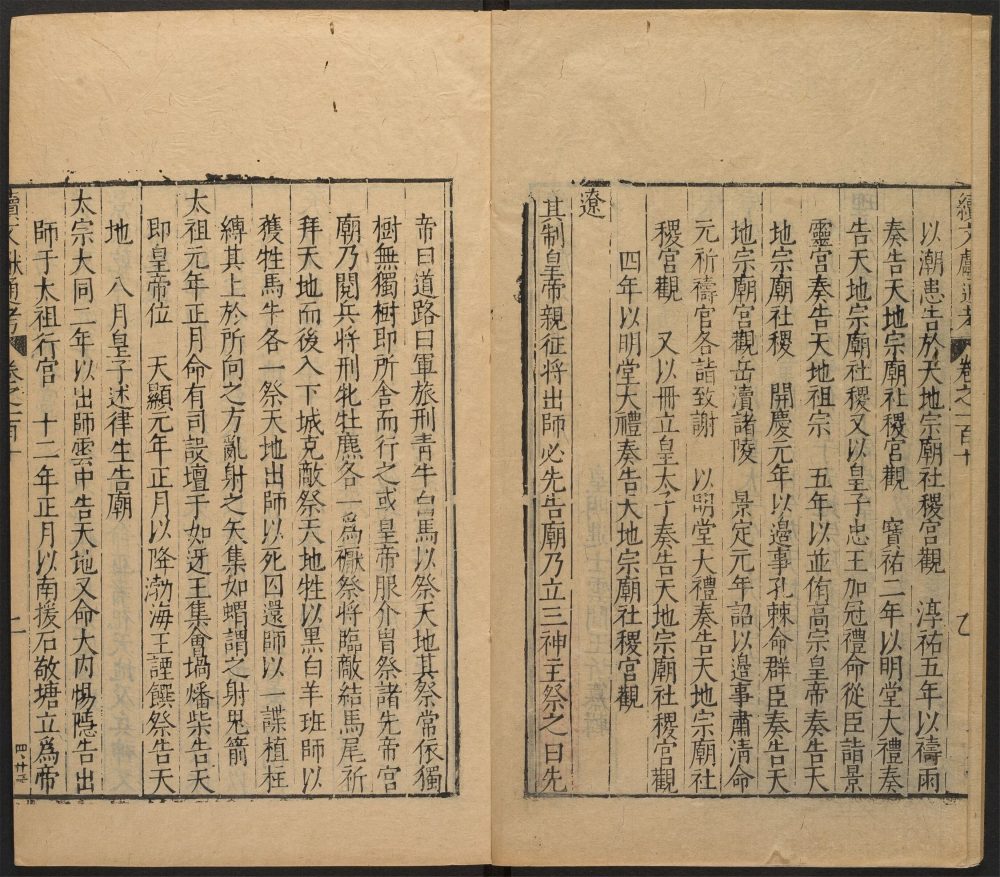 續文獻通考 卷之一百十
以潮患告於天地宗廟社稷宮觀　淳祐五年以禱雨
奏告天地宗廟社稷宮觀　寶祐二年以明堂大禮奏
告天地宗廟社稷又以皇子忠王加冠禮命從臣詣景
靈宮奏告天地祖宗　五年以並侑高宗皇帝奏告天
地宗廟社稷　開慶元年以邊事孔棘命群臣奏告天
地宗廟宮觀岳瀆諸陵　景定元年詔以邊事肅清命
元祈禱官各詣致謝　以明堂大禮奏告天地宗廟社
稷宮觀　又以冊立皇太子奏告天地宗廟社稷宮觀
四年以明堂大禮奏告天地宗廟社稷宮觀
遼
其制皇帝親征將出師必先告廟乃立三神主祭之曰先
帝曰道路曰軍旅刑青牛白馬以祭天地其祭常依獨
樹無獨樹即所舍而行之或皇帝服介冑祭諸先帝宮
廟乃閱兵將刑牝牡麃各一爲禡祭將臨敵結馬尾祈
拜天地而後入下城克敵祭天地牲以黑白羊班師以
獲牲馬牛各一祭天地出師以死囚還師以一諜植柱
縛其上於所向之方亂射之矢集如蝟謂之射鬼箭
太祖元年正月命有司設壇于如迂王集會堝燔柴告天
即皇帝位　天顯元年正月以降渤海王諲饌祭告天
地　八月皇子述律生告廟
太宗大同二年以出師雲中告天地又命大內惕隱告出
師于太祖行宮　十二年正月以南援石敬塘立爲帝
續文獻通考 卷之一百十
二